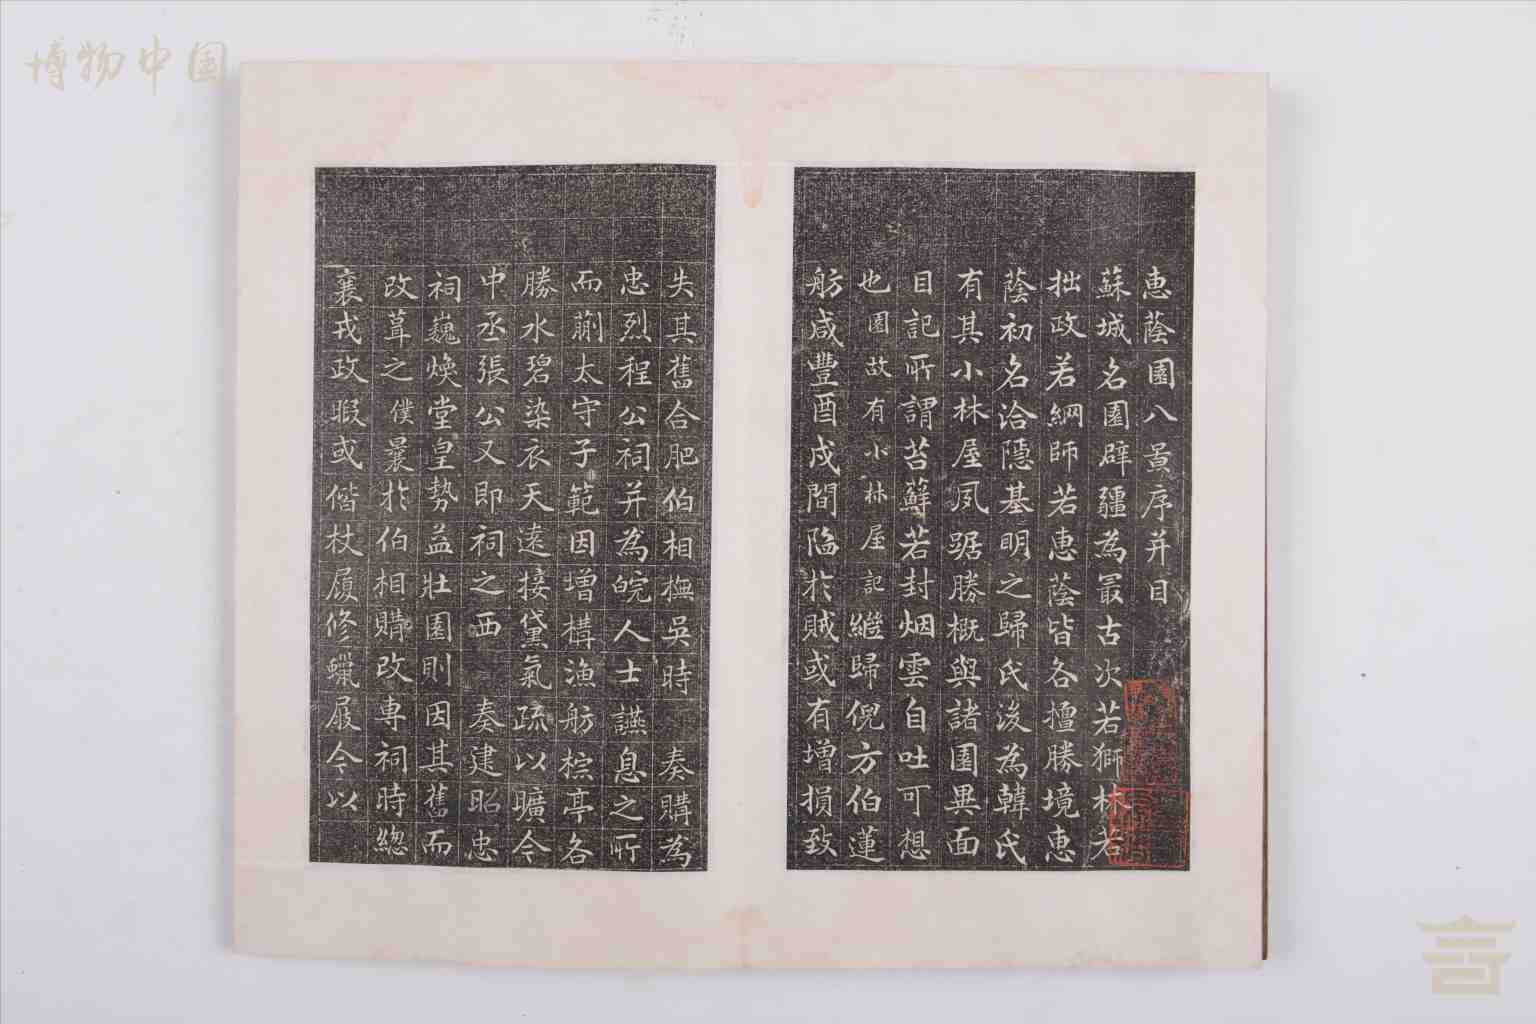 惠蔭園八景序并目
蘇城名園辟疆為冣古次若獅林若
拙政若網師若惠蔭皆各擅勝境惠
蔭初名洽隱基明之歸氏後為韓氏
有其小林屋夙踞勝概與諸園異面
目記所謂苔蘚若封烟雲自吐可想
也園故有小林屋記繼歸倪方伯蓮
舫咸豐酉戌間陷於賊或有增損致
失其舊合肥伯相撫吳時 奏購為
忠烈程公祠并為皖人士讌息之所
而蒯太守子範因增構漁舫椶亭各
勝水碧染衣天遠接黛氣疏以曠今
中丞張公又即祠之西 奏建昭忠
祠巍煥堂皇勢益壯園則因其舊而
改葺之僕曩於伯相購改專祠時總
襄戎政暇或偕杖履修蠟屐今以
博物中国